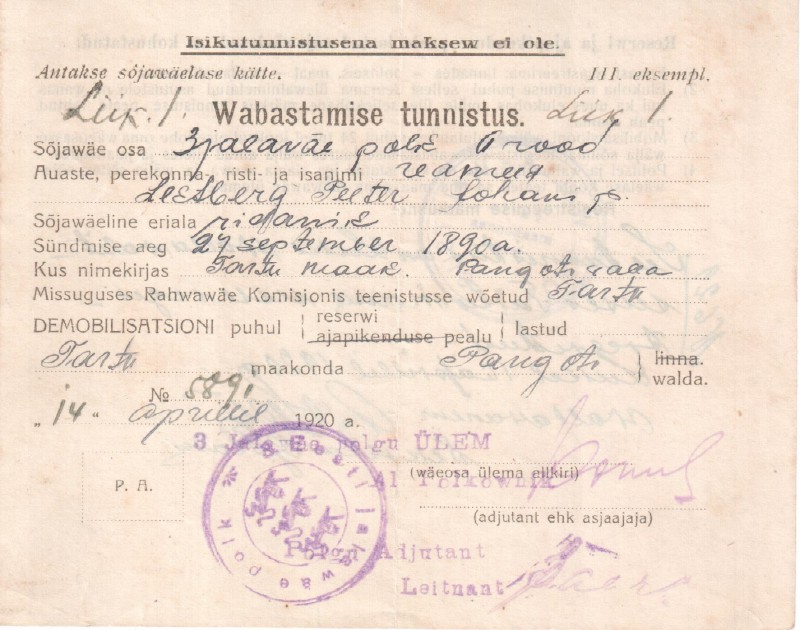 Isikutunnistusena maksew ei ole.
Antakse sõjawäelase kätte. III. eksempl.
Liik. 1. Wabastamise tunnistus. Liik 1.
Sõjawäe osa 3 jalaväe polk 6 rood
Auaste, perekonna- risti- ja isanimi reamees
Leetberg Peeter Johani p.
Sõjawäeline eriala
Sündmise aeg 27 september 1890 a.
Kus nimekirjas Tartu maak. Pangoti walla
Missuguses Rahwawäe Komisjonis teenistusse wõetud Tartu
DEMOBILISATSIONI puhul reserwi ajapikenduse pealu lastud
Tartu maakonda Pangoti linna. walda.
№ 589,
„14“ aprillil 1920 a.
3 Jalawäe polgu ÜLEM
(wäeosa ülema allkiri)
Al Polkownik
P. A.
(adjutant ehk asjaajaja)
Polgu Adjutant
Leitnant
3 Eesti Jalawäe polk